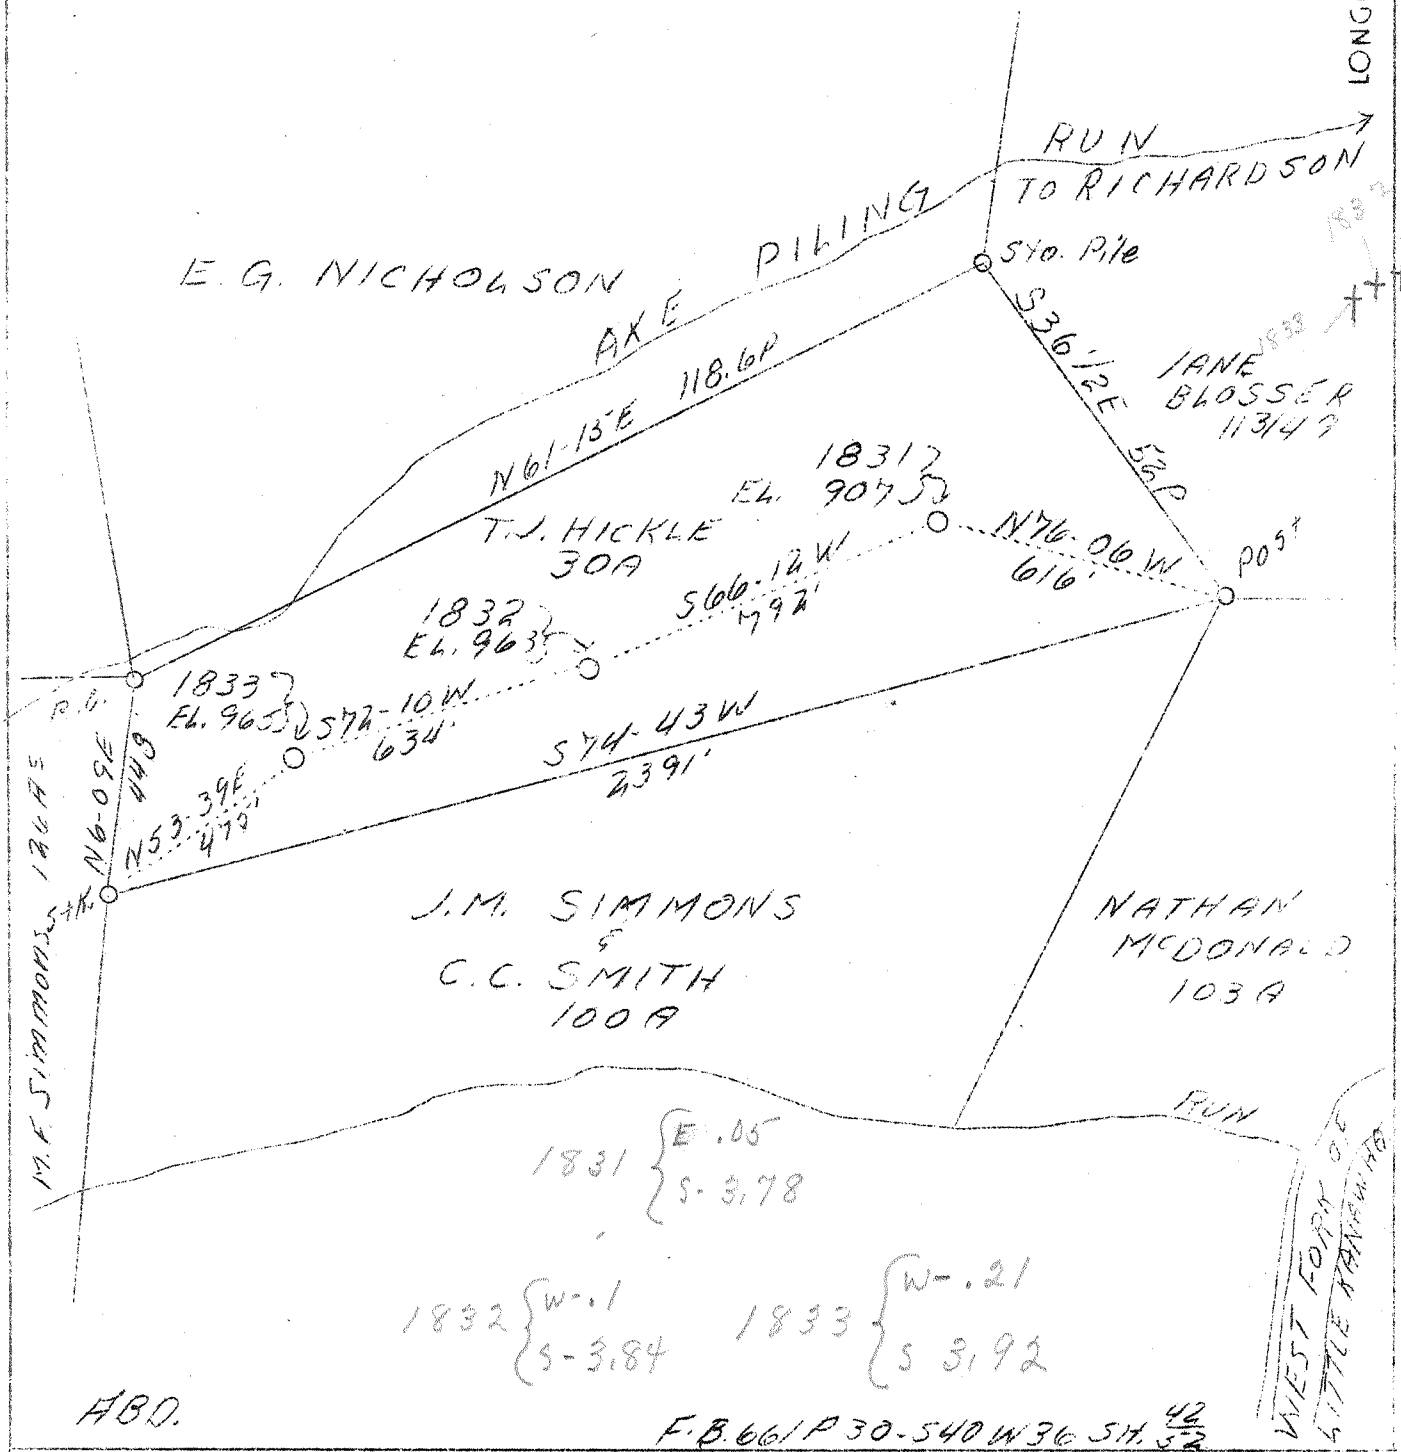 LONG
RUN
TO RICHARDSON
AXE PILING
E.G. NICHOLSON
Sto. Pile
1832
1833
S36 1/2E 52P
JANE
BLOSSER
113/49
N61-15E 118.6P
1831
EL. 907
T.J. HICKLE
30A
N76-06W
616'
POST
S66-12W
792'
1832
EL. 963
1833
EL. 965
S72-10W
634'
S74-43W
2391'
N6-09E 449
N53-39E
477'
STK.
M.F. SIMMONS 126AS
J.M. SIMMONS
&
C.C. SMITH
100A
NATHAN
McDONALD
103A
RUN
1831 { E .05
S-3.78
1832 { W-.1
S-3.84
1833 { W-.21
S 3.92
WEST FORK OF
LITTLE KANAWHA
ABD.
F.B. 661 P 30-S40W36 SH. 42/52